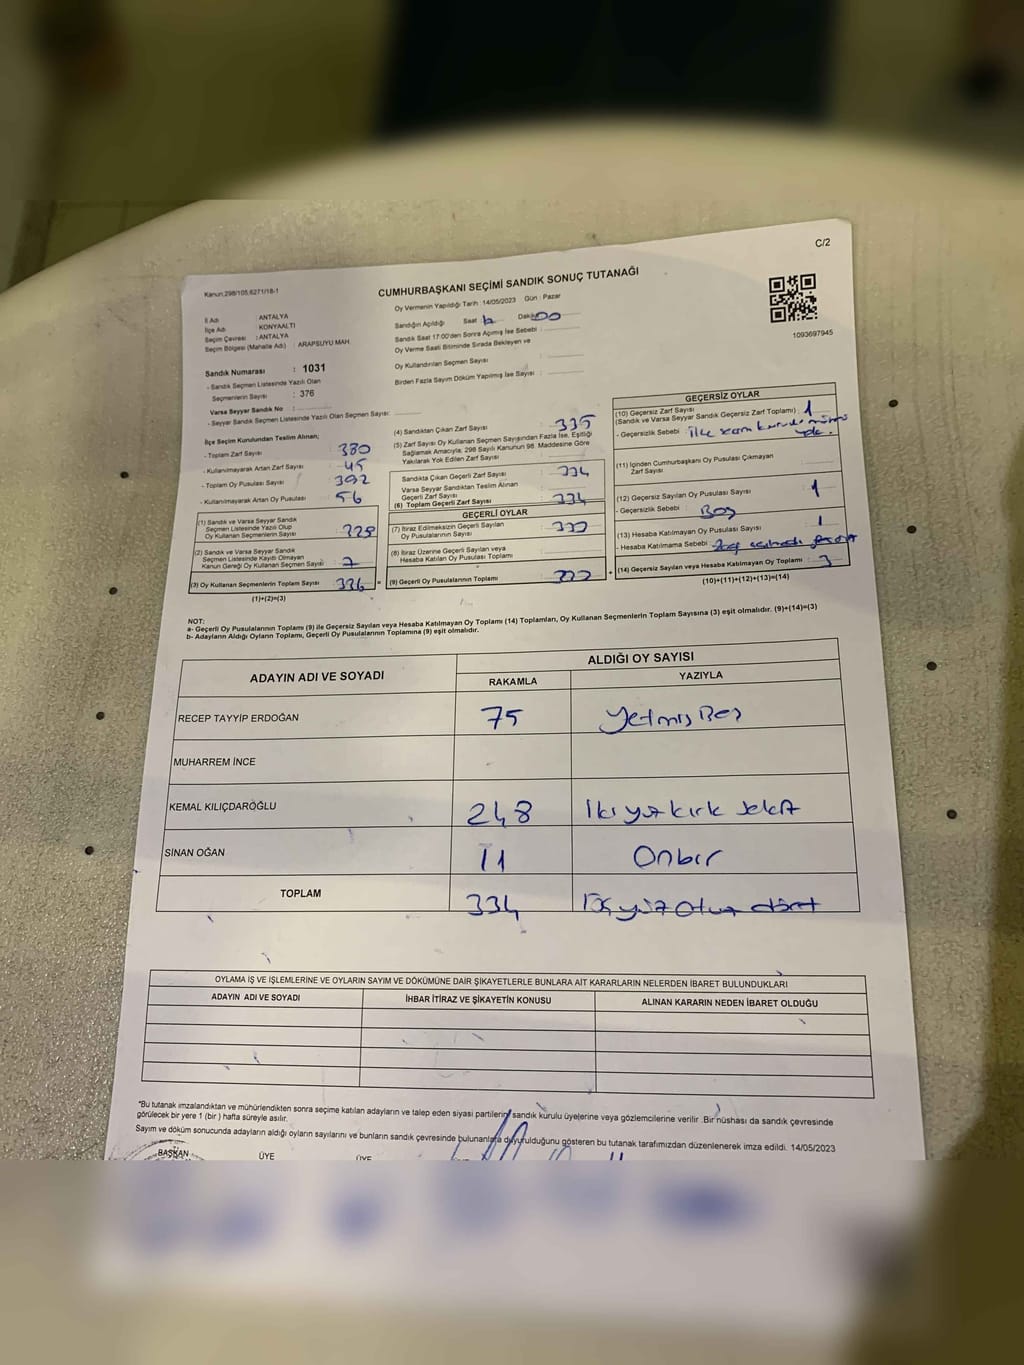 C/2
Kanun;298/105,6271/18-1
CUMHURBAŞKANI SEÇİMİ SANDIK SONUÇ TUTANAĞI
1093697945
İl Adı : ANTALYA
İlçe Adı : KONYAALTI
Seçim Çevresi : ANTALYA
Seçim Bölgesi (Mahalle Adı) : ARAPSUYU MAH.
Sandık Numarası : 1031
- Sandık Seçmen Listesinde Yazılı Olan
Seçmenlerin Sayısı : 376
Varsa Seyyar Sandık No :
- Seyyar Sandık Seçmen Listesinde Yazılı Olan Seçmen Sayısı:
Oy Vermenin Yapıldığı Tarih :14/05/2023 Gün : Pazar
Sandığın Açıldığı Saat Dakika 00
Sandık Saat 17:00'den Sonra Açımış İse Sebebi :
Oy Verme Saati Bitiminde Sırada Bekleyen ve
Oy Kullandırılan Seçmen Sayısı :
Birden Fazla Sayım Döküm Yapılmış İse Sayısı :
İlçe Seçim Kurulundan Teslim Alınan;
- Toplam Zarf Sayısı : 380
- Kullanılmayarak Artan Zarf Sayısı : 45
- Toplam Oy Pusulası Sayısı : 392
- Kullanılmayarak Artan Oy Pusulası : 56
(1) Sandık ve Varsa Seyyar Sandık
Seçmen Listesinde Yazılı Olup
Oy Kullanan Seçmenlerin Sayısı : 329
(2) Sandık ve Varsa Seyyar Sandık
Seçmen Listesinde Kayıtlı Olmayan
Kanun Gereği Oy Kullanan Seçmen Sayısı : 7
(3) Oy Kullanan Seçmenlerin Toplam Sayısı 336
(1)+(2)=(3)
(4) Sandıktan Çıkan Zarf Sayısı : 335
(5) Zarf Sayısı Oy Kullanan Seçmen Sayısından Fazla İse, Eşitliği
Sağlamak Amacıyla; 298 Sayılı Kanunun 98. Maddesine Göre
Yakılarak Yok Edilen Zarf Sayısı :
Sandıkta Çıkan Geçerli Zarf Sayısı : 334
Varsa Seyyar Sandıktan Teslim Alınan
Geçerli Zarf Sayısı
(6) Toplam Geçerli Zarf Sayısı : 334
GEÇERLİ OYLAR
(7) İtiraz Edilmeksizin Geçerli Sayılan
Oy Pusulalarının Sayısı : 333
(8) İtiraz Üzerine Geçerli Sayılan veya
Hesaba Katılan Oy Pusulası Toplamı :
(9) Geçerli Oy Pusulalarının Toplamı : 333
GEÇERSİZ OYLAR
(10) Geçersiz Zarf Sayısı
(Sandık ve Varsa Seyyar Sandık Geçersiz Zarf Toplamı) : 1
- Geçersizlik Sebebi : İlçe seçim kurulu mührü yok.
(11) İçinden Cumhurbaşkanı Oy Pusulası Çıkmayan
Zarf Sayısı :
(12) Geçersiz Sayılan Oy Pusulası Sayısı : 1
- Geçersizlik Sebebi : Boş
(13) Hesaba Katılmayan Oy Pusulası Sayısı : 1
- Hesaba Katılmama Sebebi :
(14) Geçersiz Sayılan veya Hesaba Katılmayan Oy Toplamı : 3
(10)+(11)+(12)+(13)=(14)
NOT:
a- Geçerli Oy Pusulalarının Toplamı (9) ile Geçersiz Sayılan veya Hesaba Katılmayan Oy Toplamı (14) Toplamları, Oy Kullanan Seçmenlerin Toplam Sayısına (3) eşit olmalıdır. (9)+(14)=(3)
b- Adayların Aldığı Oyların Toplamı, Geçerli Oy Pusulalarının Toplamına (9) eşit olmalıdır.
ADAYIN ADI VE SOYADI
ALDIĞI OY SAYISI
RAKAMLA YAZIYLA
RECEP TAYYİP ERDOĞAN 75 YetmişBeş
MUHARREM İNCE
KEMAL KILIÇDAROĞLU 248 İki yüz kırk sekiz
SİNAN OĞAN 11 Onbir
TOPLAM 334 Üç yüz otuz dört
OYLAMA İŞ VE İŞLEMLERİNE VE OYLARIN SAYIM VE DÖKÜMÜNE DAİR ŞİKAYETLERLE BUNLARA AİT KARARLARIN NELERDEN İBARET BULUNDUKLARI
ADAYIN ADI VE SOYADI İHBAR İTİRAZ VE ŞİKAYETİN KONUSU ALINAN KARARIN NEDEN İBARET OLDUĞU
*Bu tutanak imzalandıktan ve mühürlendikten sonra seçime katılan adayların ve talep eden siyasi partilerin sandık kurulu üyelerine veya gözlemcilerine verilir. Bir nüshası da sandık çevresinde
görülecek bir yere 1 (bir ) hafta süreyle asılır.
Sayım ve döküm sonucunda adayların aldığı oyların sayılarını ve bunların sandık çevresinde bulunanlara duyurulduğunu gösteren bu tutanak tarafımızdan düzenlenerek imza edildi. 14/05/2023
BAŞKAN ÜYE ÜYE